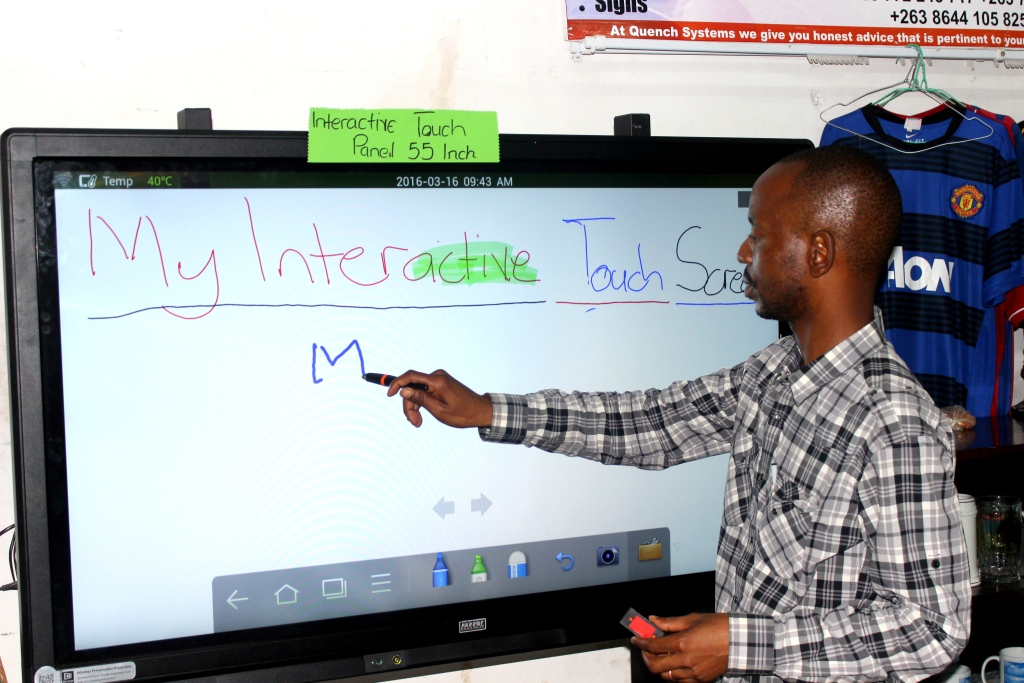 Signs
+263 8644 105 825
At Quench Systems we give you honest advice that is pertinent to your
Interactive Touch
Panel 55 Inch
Temp 40°C
2016-03-16 09:43 AM
My Interactive Touch Scree
M
AON
PARROT